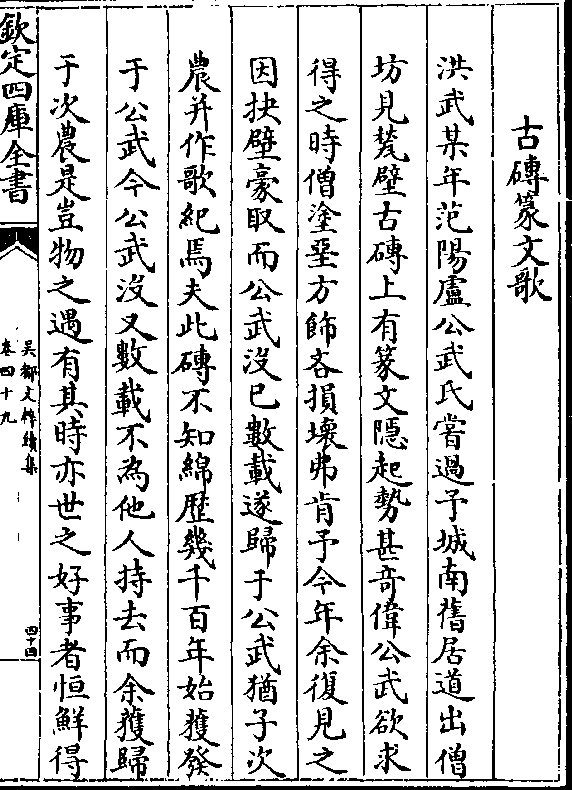 古磚篆文歌
洪武某年范陽盧公武氏嘗過予城南舊居道出僧
坊見甃壁古磚上有篆文隠起勢甚奇偉公武欲求
得之時僧塗堊方飾吝損壞弗肯予今年余復見之
因抉壁豪取而公武沒已數載遂歸于公武猶子次
農并作歌紀焉夫此磚不知綿歴幾千百年始獲發
于公武今公武沒又數載不為他人持去而余獲歸
于次農是豈物之遇有其時亦世之好事者恒鮮得
欽定四庫全書
吳都文粹續集
卷四十九
四十四